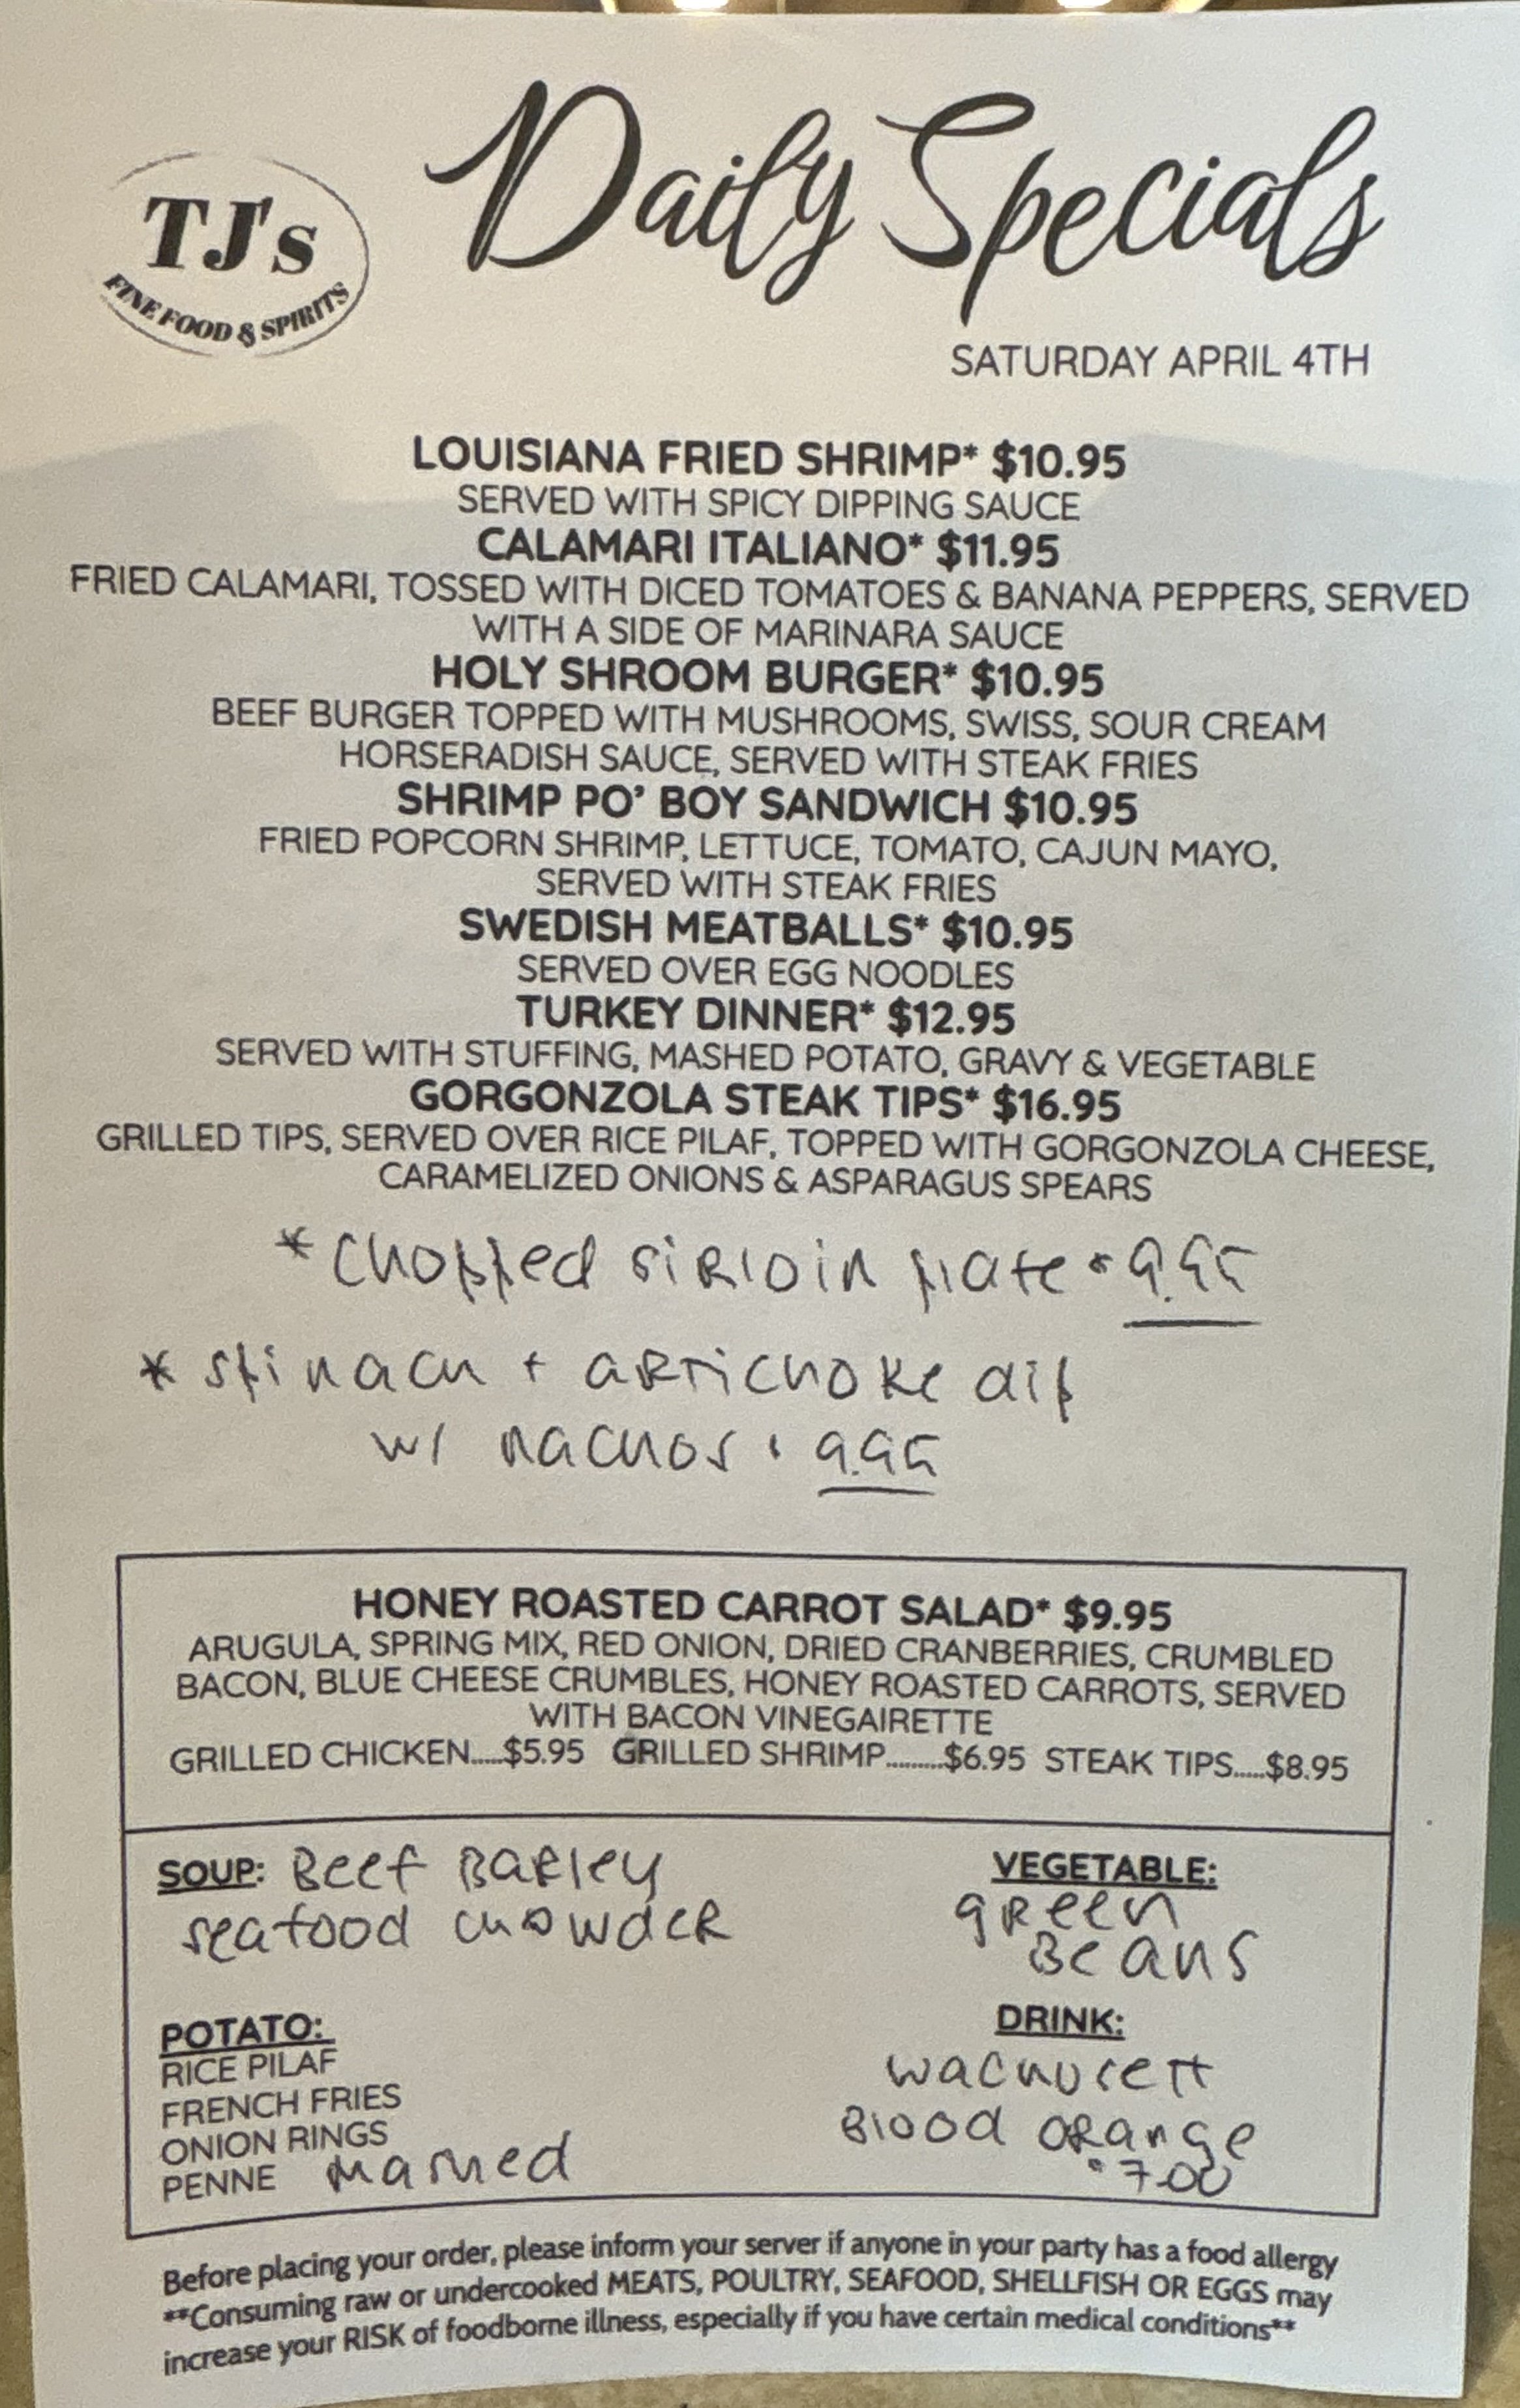 TJ's
FINE FOOD & SPIRITS
Daily Specials
SATURDAY APRIL 4TH
LOUISIANA FRIED SHRIMP* $10.95
SERVED WITH SPICY DIPPING SAUCE
CALAMARI ITALIANO* $11.95
FRIED CALAMARI, TOSSED WITH DICED TOMATOES & BANANA PEPPERS, SERVED
WITH A SIDE OF MARINARA SAUCE
HOLY SHROOM BURGER* $10.95
BEEF BURGER TOPPED WITH MUSHROOMS, SWISS, SOUR CREAM
HORSERADISH SAUCE, SERVED WITH STEAK FRIES
SHRIMP PO' BOY SANDWICH $10.95
FRIED POPCORN SHRIMP, LETTUCE, TOMATO, CAJUN MAYO,
SERVED WITH STEAK FRIES
SWEDISH MEATBALLS* $10.95
SERVED OVER EGG NOODLES
TURKEY DINNER* $12.95
SERVED WITH STUFFING, MASHED POTATO, GRAVY & VEGETABLE
GORGONZOLA STEAK TIPS* $16.95
GRILLED TIPS, SERVED OVER RICE PILAF, TOPPED WITH GORGONZOLA CHEESE,
CARAMELIZED ONIONS & ASPARAGUS SPEARS
* Chopped sirloin plate • 9.95
* spinach + artichoke dip
w/ nachos • 9.95
HONEY ROASTED CARROT SALAD* $9.95
ARUGULA, SPRING MIX, RED ONION, DRIED CRANBERRIES, CRUMBLED
BACON, BLUE CHEESE CRUMBLES, HONEY ROASTED CARROTS, SERVED
WITH BACON VINEGAIRETTE
GRILLED CHICKEN.....$5.95 GRILLED SHRIMP.........$6.95 STEAK TIPS.....$8.95
SOUP: Beef Barley
seafood chowder
VEGETABLE:
green
Beans
POTATO:
RICE PILAF
FRENCH FRIES
ONION RINGS
PENNE Mashed
DRINK:
wachusett
Blood orange
• 7.00
Before placing your order, please inform your server if anyone in your party has a food allergy
**Consuming raw or undercooked MEATS, POULTRY, SEAFOOD, SHELLFISH OR EGGS may
increase your RISK of foodborne illness, especially if you have certain medical conditions**